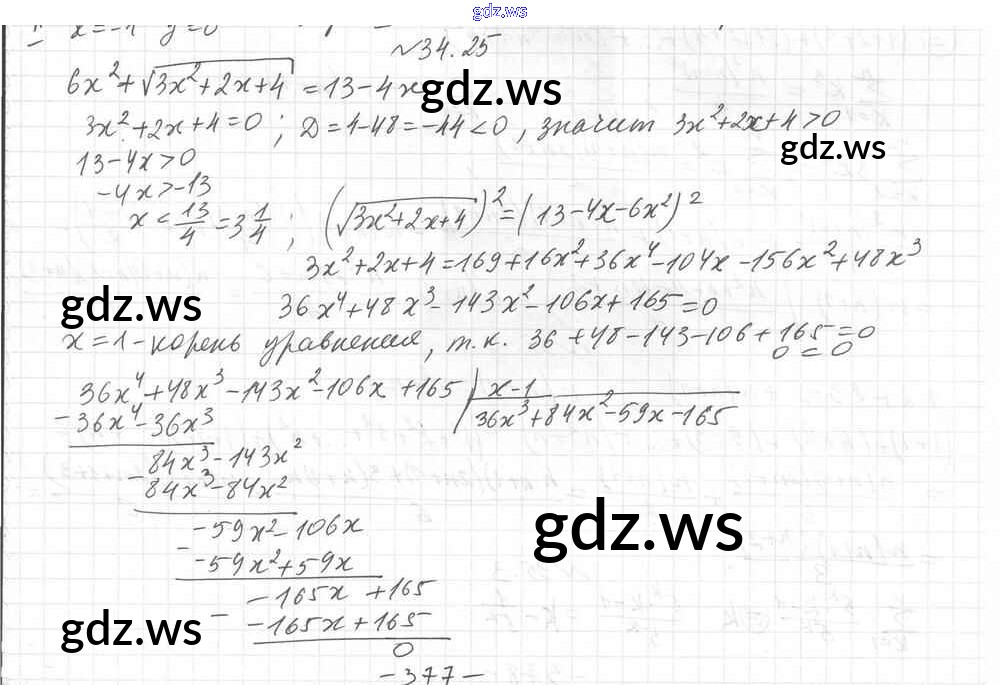 gdz.ws
x=-1 y=0
№34.25
6x²+√3x²+2x+4 =13-4x
gdz.ws
3x²+2x+4=0; D=4-48=-44<0, значит 3x²+2x+4>0
gdz.ws
13-4x>0
-4x>-13
x<13/4=3 1/4; (√3x²+2x+4)²=(13-4x-6x²)²
3x²+2x+4=169+16x²+36x⁴-104x-156x²+48x³
gdz.ws
36x⁴+48x³-143x²-106x+165=0
x=1-корень уравнения, т.к. 36+48-143-106+165=0
0=0
36x⁴+48x³-143x²-106x+165 | x-1
-36x⁴-36x³ 36x³+84x²-59x-165
84x³-143x²
-84x³-84x²
gdz.ws
-59x²-106x
- -59x²+59x
-165x+165
gdz.ws
- -165x+165
0
-377-